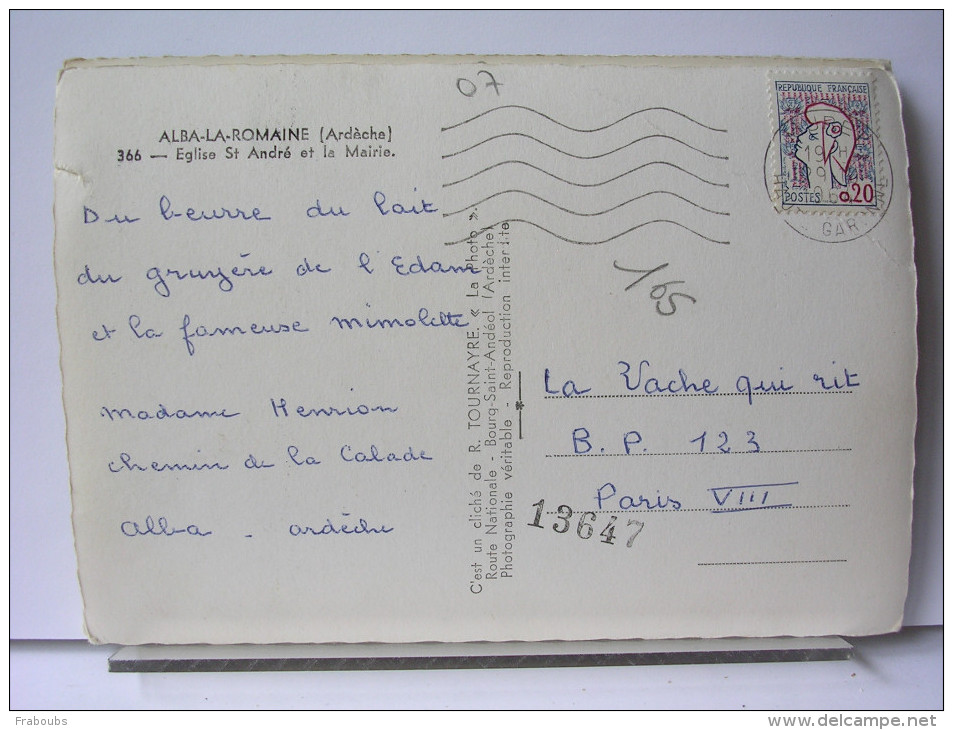 07
ALBA-LA-ROMAINE (Ardèche)
366 — Eglise St André et la Mairie.
REPUBLIQUE FRANÇAISE
POSTES 0,20
19 H
GAR
Du beurre du lait
du gruyère de l'Edam
et la fameuse mimolette
Madame Henrion
chemin de la Calade
Alba - ardèche
C'est un cliché de R. TOURNAYRE. « La Photo ».
Route Nationale - Bourg-Saint-Andéol (Ardèche)
Photographie véritable - Reproduction interdite
165
La Vache qui rit
B. P. 123
Paris VIII
13647
Fraboubs
www.delcampe.net